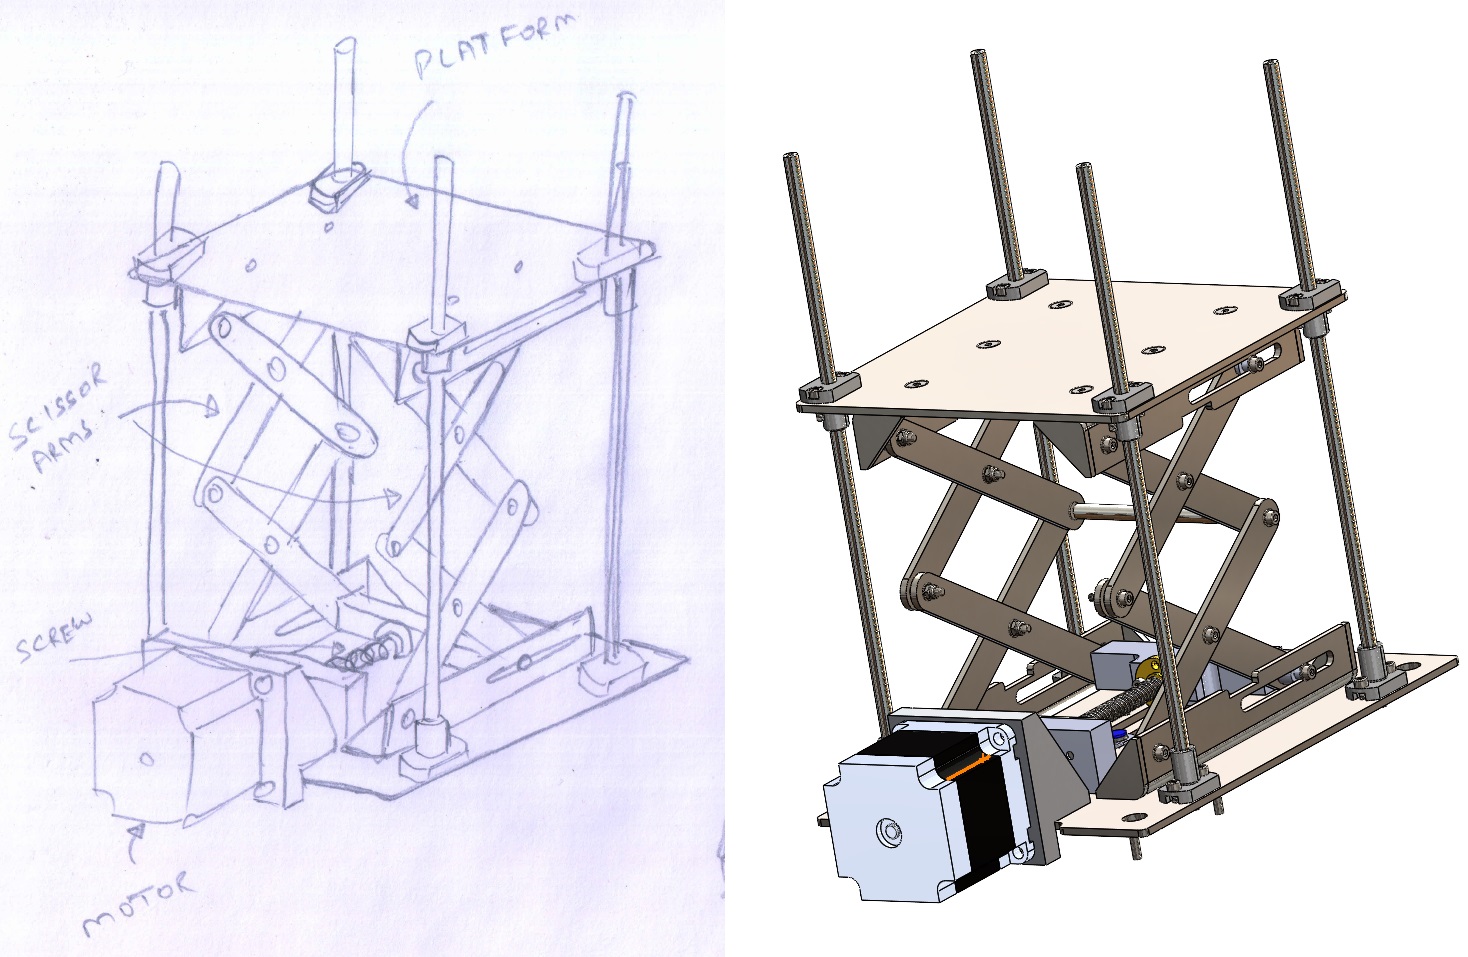 PLATFORM
SCISSOR
ARMS
SCREW
MOTOR